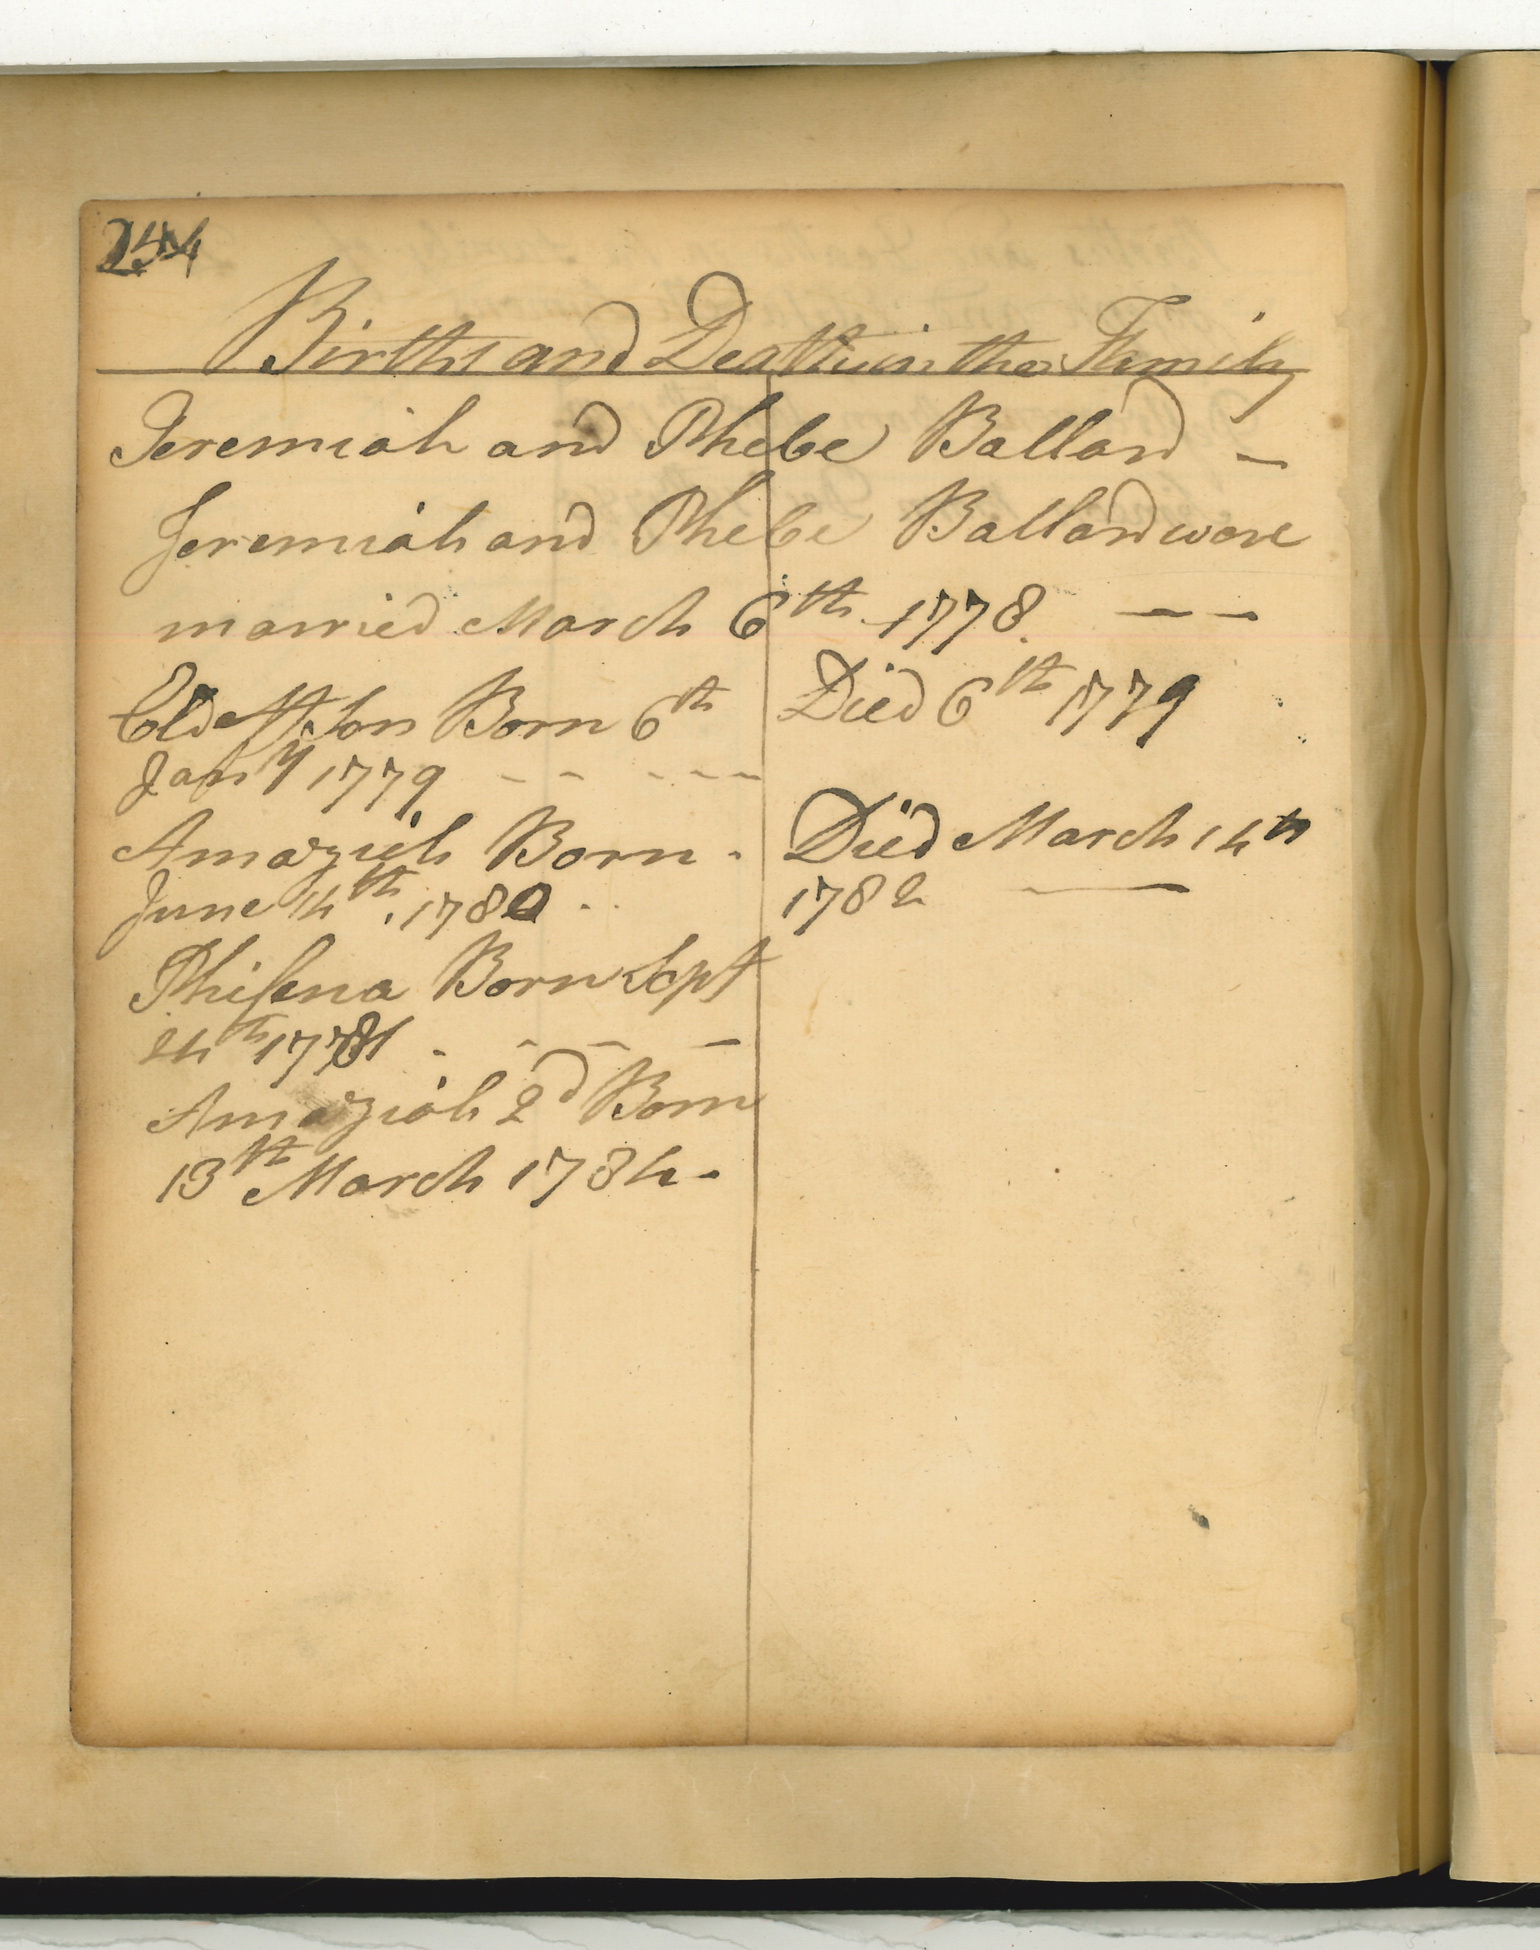 254
Births and Deaths in the Family
Jeremiah and Phebe Ballard -
Jeremiah and Phebe Ballard were
married March 6th 1778. - -
Eldest Son Born 6th
Jany 1779 - - - - -
Died 6th 1779
Amaziah Born.
June 14th. 1780..
Died March 14th
1782 -
Phisena Born Sept
24th 1781 - - - -
Amaziah 2d Born
13th March 1784.